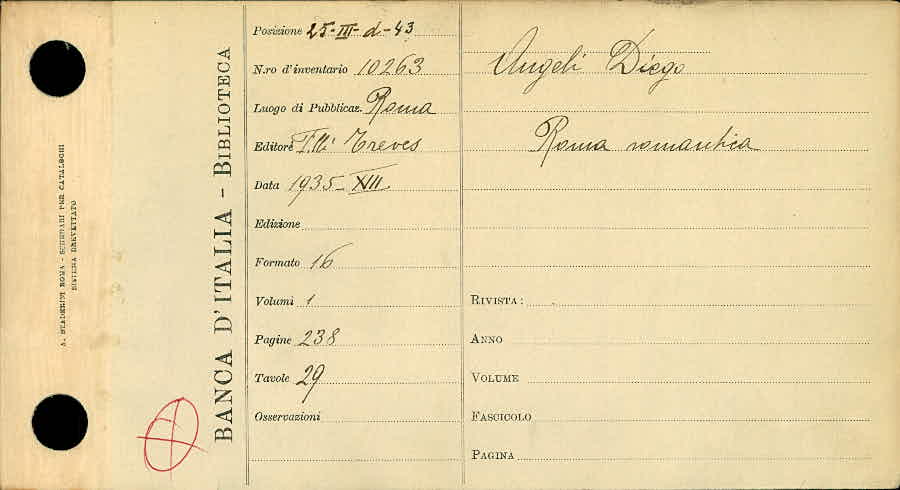 A. STADERINI ROMA - SCHEDARI PER CATALOGHI
SISTEMA BREVETTATO
BANCA D'ITALIA - BIBLIOTECA
Posizione 25-III-d-43
N.ro d'inventario 10263
Luogo di Pubblicaz. Roma
Editore F.lli Treves
Data 1935-XIII
Edizione
Formato 16
Volumi 1
Pagine 238
Tavole 29
Osservazioni
Angeli Diego
Roma romantica
RIVISTA:
ANNO
VOLUME
FASCICOLO
PAGINA